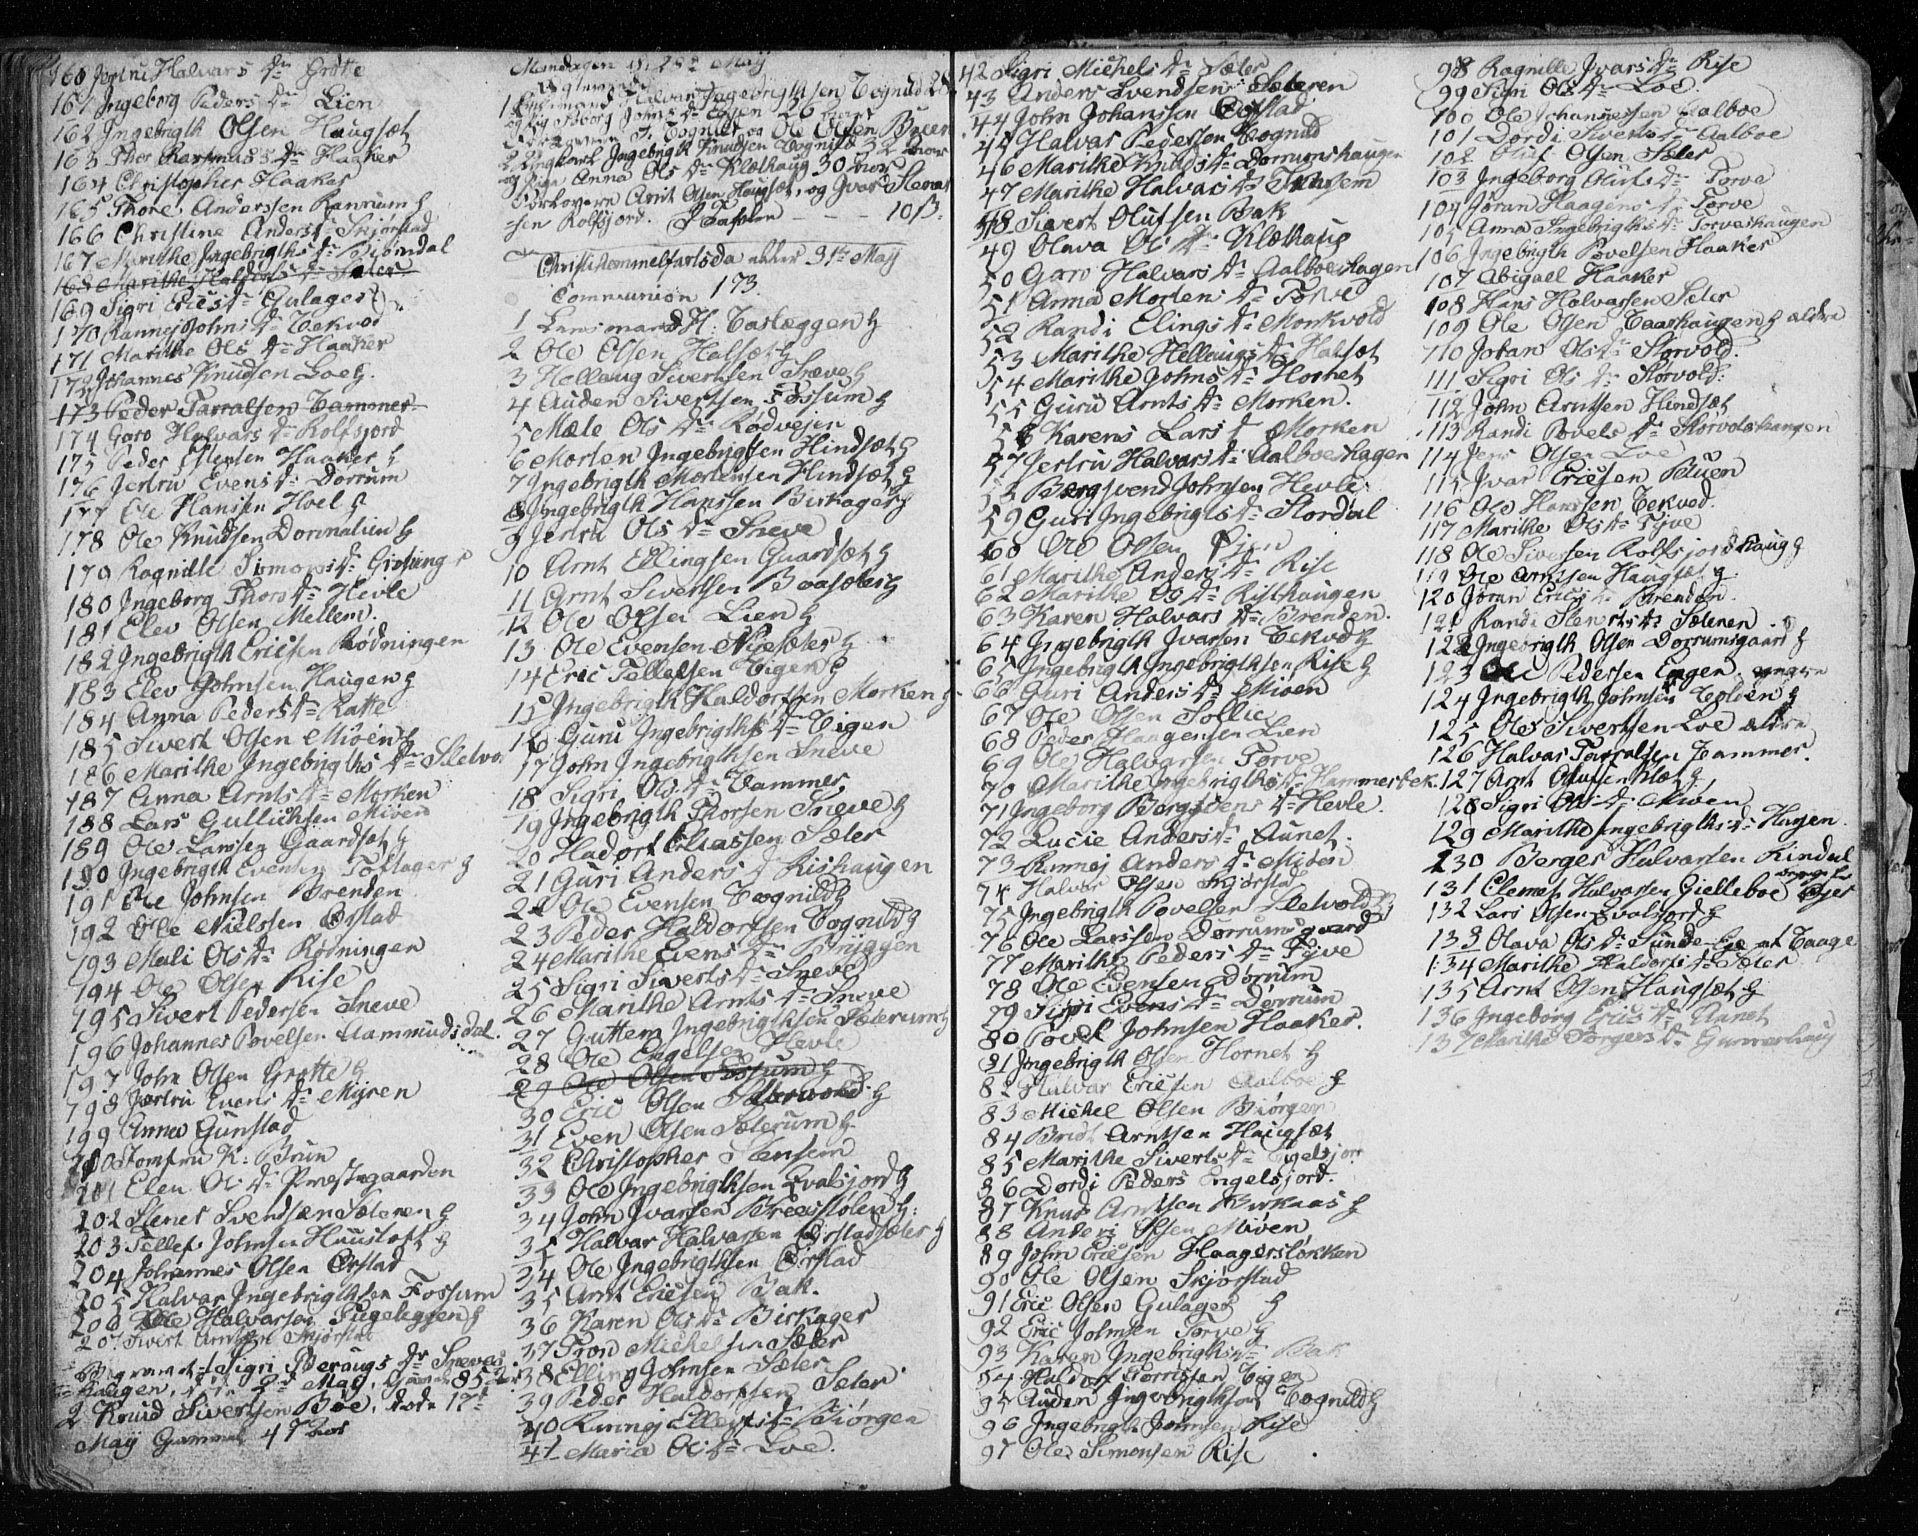 160 Jertru Halvars Dr Grøtte
161 Ingeborg Peders Dr Lien
162 Ingebrigth Olsen Haugsæt
163 Thor Rasmus Dr Haaker
164 Christopher Haaker
165 Thore Anderssen Ramrum
166 Christine Anders Skjørstad
167 Marithe Ingebrigths Dr Biørndal
168 Marithe Haldors Dr Sæter
169 Sigri Erics Dr Gulager
170 Rannej Johns Dr Tekvod
171 Marithe Ols Dr Haaker
172 Johannes Knudsen Loe
173 Peder Tarralsen Tammer
174 Goro Halvars Dr Rolfsjord
175 Peder Haaker
176 Jertru Evens Dr Dorrum
177 Ole Hansen Hoel
178 Ole Knudsen Dormalien
179 Ragnille Simons Dr Grøtung
180 Ingeborg Thors Dr Hevle
181 Elev Olsen Mellem
182 Ingebrigth Ericsen Rødningen
183 Elev Johnsen Haugen
184 Anna Peders Dr Ratte
185 Sivert Olsen Miøen
186 Marithe Ingebrigths Dr Sletvo
187 Anna Arnts Dr Morken
188 Lars Gullichsen Miøen
189 Ole Larssen Gaardsæt
190 Ingebrigth Evensen Toftager
191 Ole Johnsen Brenden
192 Ole Nielssen Ørstad
193 Mali Ols Dr Rødningen
194 Ole Olsen Rise
195 Sivert Pedersen Sneve
196 Johannes Povelsen Aammundsdal
197 John Olsen Grøtte
198 Jertru Evens Dr Myren
199 Anna Gunstad
200 Jomfru K: Brun
201 Elen Ols Dr Præstegaarden
202 Stener Svendsen Sæteren
203 Tellef Johnsen Huustoft
204 Johannes Olsen Ørstad
205 Halvar Ingebrigthsen Fossum
206 Ole Halvarsen Segeleggen
207 Sivert Arntsen Skjørstad
Sigri Beraugs Dr Sneves
haugen, 2d Maj, gammel 85
2 Knud Sivertsen Bøe, døde 17de
Maij Gammel 47
Mandagen d. 28de Maij
Halvar Ingebrigthsen Tognild 28
Johns Dr 26
T. Tognild og Ole Olsen Buen
2 Ungkarl Ingebrigth Knudsen Tognild 32
og Pige Anna Ols Dr Klæthaug 30
Forlovere Arnt Olsen Haugsæt, og Ivar Stenersen
Rolfsjord. - - - 10 ß.
Christi himmelfartsda eller 31te Maij
Communion 173.
1 Lensmand H: Taslæggen
2 Ole Olsen Halsæt
3 Hellaug Sivertsen Sneve
4 Auden Sivertsen Fossum
5 Mæle Ols Dr Rødvejen
6 Morten Ingebrigtsen Hindsæt
7 Ingebrigth Mortensen Hindsæt
8 Ingebrigth Hanssen Birkager
9 Jertru Ols Dr Sneve
10 Arnt Ellingsen Gaardsæt
11 Arnt Sivertsen Baasæter
12 Ole Olsen Lien
13 Ole Evensen Nysæter
14 Eric Tellefsen Eigen
15 Ingebrigth Haldorsen Morken
16 Guru Ingebrigths Dr Eigen
17 John Ingebrigthsen Sneve
18 Sigri Ols Dr Tammer
19 Ingebrigth Thorsen Sneve
20 Hador Eliassen Sæter
21 Guri Anders D Risehaugen
22 Ole Evensen Tognild
23 Peder Haldorsen Tognild
24 Marithe Evens Dr Bryggen
25 Sigri Siverts Dr Sneve
26 Marithe Arnts Dr Sneve
27 Guttorm Ingebrigthsen Sæterum
28 Ole Engelsen Hevle
29 Ole Olsen Fossum
30 Eric Olsen Sletvold
31 Even Olsen Sæterum
32 Christopher Stensem
33 Ole Ingebrigthsen Evalsjord
34 John Ivarsen Breestølen
35 Halvar Halvarsen Ørstadsæter
34 Ole Ingebrigthsen Ørstad
35 Arnt Ericsen Bak.
36 Karen Ols Dr Birkager
37 Tron Michelsen Sæter
38 Elling Johnsen Sæter
39 Peder Haldorsen Sæter
40 Runnj Ellevs Dr Biørgen
41 Maria Ols Dr Loe.
42 Sigri Michels Dr Sæter
43 Anders Svendsen Sæteren
44 John Johanssen Ørstad
45 Halvar Pedersen Tognild
46 Marithe Knuds Dr Dorrumshaugen
47 Marithe Halvars Dr Stensem
48 Sivert Olufsen Bak
49 Olava Ols Dr Klæthaug
50 Goro Halvars Dr Aalboeshagen
51 Anna Mortens Dr Torve
52 Randi Elings Dr Morkvold
53 Marithe Hellaugs Dr Halsæt
54 Marithe Johns Dr Hornet
55 Guru Arnts Dr Morken.
56 Karen Lars D Morken
57 Jertru Halvars Dr Aalboeshagen
58 Bergsvend Johnsen Hevle
59 Guri Ingebrigts Dr Stordal
60 Ole Olsen
61 Marithe Anders Dr Rise
62 Marithe Ols Dr Risehaugen
63 Karen Halvars Dr Brenden.
64 Ingebrigth Ivarsen Tekvod
65 Ingebrigth Ingebrigthsen Rise
66 Guri Anders Dr Miøen
67 Ole Olsen Sollie
68 Peder Haagensen Lien
69 Ole Halvarsen Torve
70 Marithe Ingebrigths Dr Hammerbek.
71 Ingeborg Bergsvens Dr Hevle.
72 Lucie Anders Dr Aunet.
73 Runnej Anders Dr Miøen
74 Halvar Olsen Skjørstad
75 Ingebrigth Povelsen Sletvold
76 Ole Larssen Dorrumsgaard
77 Marithe Peders Dr Tyve
78 Ole Evensen Dorrum
79 Sigri Evens Dr Dorrum
80 Povel Johnsen Haaker.
81 Ingebrigth Olsen Hornet
82 Halvar Ericsen Aalboe
83 Michel Olsen Biørgen
84 Brut Arntsen Haugsæt
85 Marithe Siverts Dr Engelsjor
86 Dordi Peders Engelsjord.
87 Knud Arntsen Birkaas
88 Anders Olsen Miøen
89 John Ericsen Haagersløkken
90 Ole Olsen Skjørstad
91 Eric Olsen Gulager
92 Eric Johnsen Torve
93 Karen Ingebrigths Dr Bak
94 Haldor Torrissen Eigen
95 Auden Ingebrigthsen Tognild
96 Ingebrigth Johnsen Rise
97 Ole Simonsen Rise
98 Ragnille Ivars Dr Rise
99 Sigri Ols Dr Loe.
100 Ole Johannessen Aalboe
101 Dordi Siverts Dr Aalboe
102 Oluf Olsen Sæter
103 Ingeborg Olufs Dr Torve
104 Jøran Haagens Dr Torve
105 Anna Ingebrigths Dr Torveshaugen
106 Ingebrigth Povelsen Haaker
107 Abigael Haaker
108 Hans Halvarsen Sæter
109 Ole Olsen Taashaugen ældre
110 Johan Ols Dr Storvold.
111 Sigri Ols Dr Storvold.
112 John Arntsen Hindsæt
113 Randi Povels Dr Storvoldshaugen
114 Jens Olsen Loe
115 Ivar Ericsen Buen
116 Ole Hansen Tekvod.
117 Marithe Ols Dr Tyve
118 Ole Siversen Rolfsjordshaug
119 Ole Arntsen Haugsæt
120 Jøran Erics Dr Brenden.
121 Randi Steners Dr Sæteren
122 Ingebrigth Olsen Dorrumsgaard
123 Ole Pedersen Engen yngre
124 Ingebrigth Johnsen Tolvøen
125 Ole Sivertsen Loe ældre
126 Halvar Torralsen Tammer.
127 Arnt Olufsen Klæt
128 Sigri Ols Dr Miøen
129 Marithe Ingebrigths Dr Hagen.
130 Berges Halvarsen Rindal
131 Clemet Halvarsen Gielleboe
132 Lars Olsen Evalsjord
133 Olava Ols Dr Sunde
134 Marithe Haldors Dr Sæter
135 Arnt Olsen Haugsæt
136 Ingeborg Erics Dr Aunet
137 Marithe Torgers Dr Gunneshaug